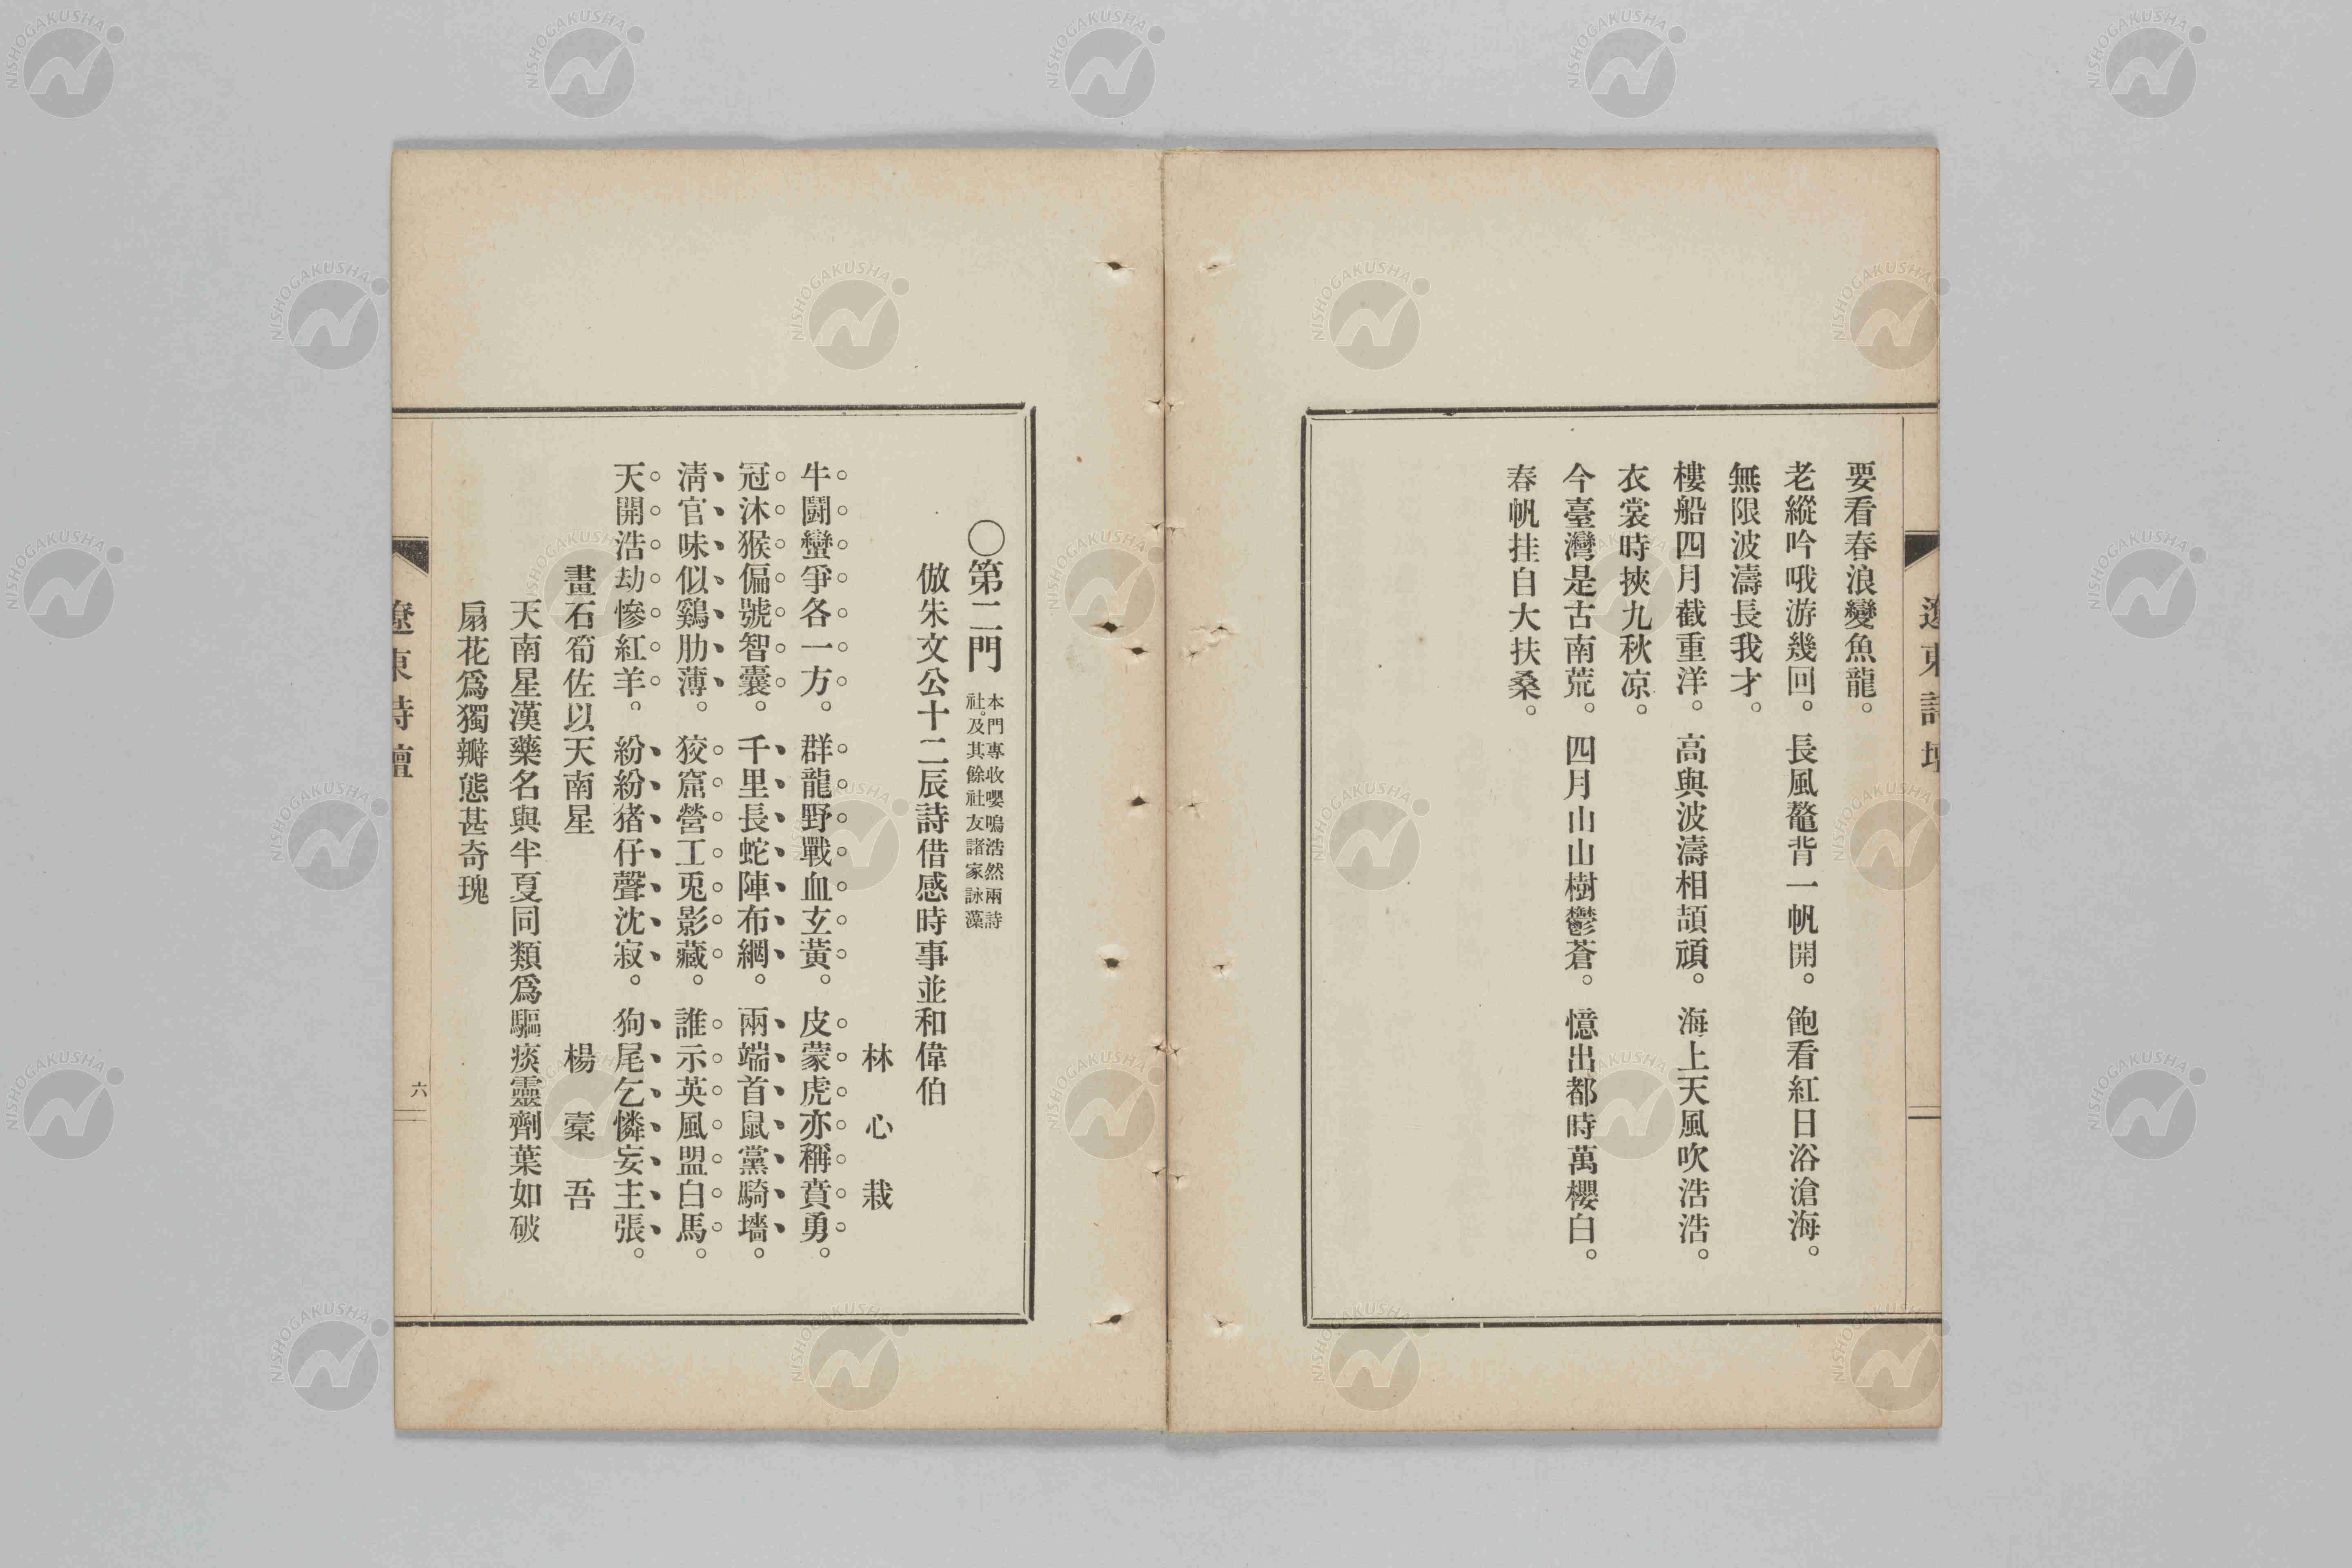 遼東詩壇
要看春浪變魚龍。
老縱吟哦游幾回。長風鼇背一帆開。飽看紅日浴滄海。
無限波濤長我才。
樓船四月截重洋。高與波濤相頡頏。海上天風吹浩浩。
衣裳時挾九秋凉。
今臺灣是古南荒。四月山山樹鬱蒼。憶出都時萬櫻白。
春帆挂自大扶桑。
〇第二門
本門專收嚶鳴浩然兩詩
社。及其餘社友諸家詠藻
倣朱文公十二辰詩借感時事並和偉伯
林心栽
牛鬪蠻爭各一方。群龍野戰血玄黃。皮蒙虎亦稱賁勇。
冠沐猴偏號智囊。千里長蛇陣布網。兩端首鼠黨騎墻。
淸官味似鷄肋薄。狡窟營工兎影藏。誰示英風盟白馬。
天開浩劫慘紅羊。紛紛猪仔聲沈寂。狗尾乞憐妄主張。
畫石筍佐以天南星
楊槖吾
天南星漢藥名與半夏同類爲驅痰靈劑葉如破
扇花爲獨瓣態甚奇瑰
遼東詩壇
六
NISHOGAKUSHA